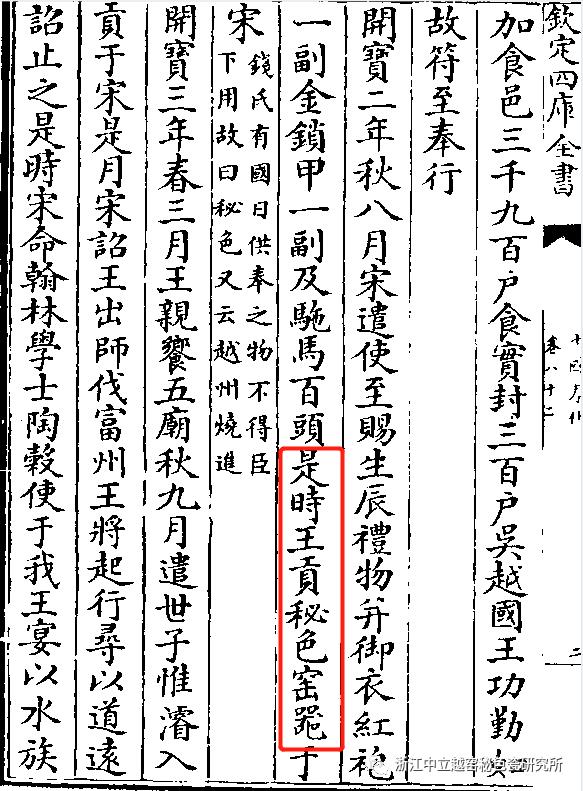 欽定四庫全書
卷八十二
二
加食邑三千九百户食實封三百户吳越國王功勤如
故符至奉行
開寶二年秋八月宋遣使至賜生辰禮物并御衣紅袍
一副金鎖甲一副及駞馬百頭是時王貢秘色窑噐于
宋
錢氏有國日供奉之物不得臣
下用故曰秘色又云越州燒進
開寶三年春三月王親饗五廟秋九月遣世子惟濬入
貢于宋是月宋詔王出師伐富州王將起行尋以道遠
詔止之是時宋命翰林學士陶榖使于我王宴以水族
浙江中立越窑秘色瓷研究所